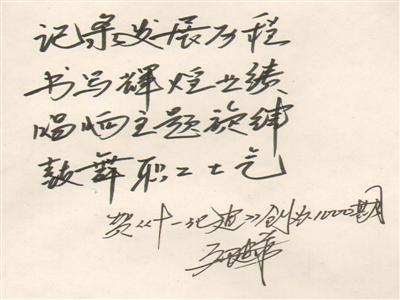 记录发展历程
书写辉煌业绩
唱响主题旋律
鼓舞职工士气
贺《十一化建》创办1000期